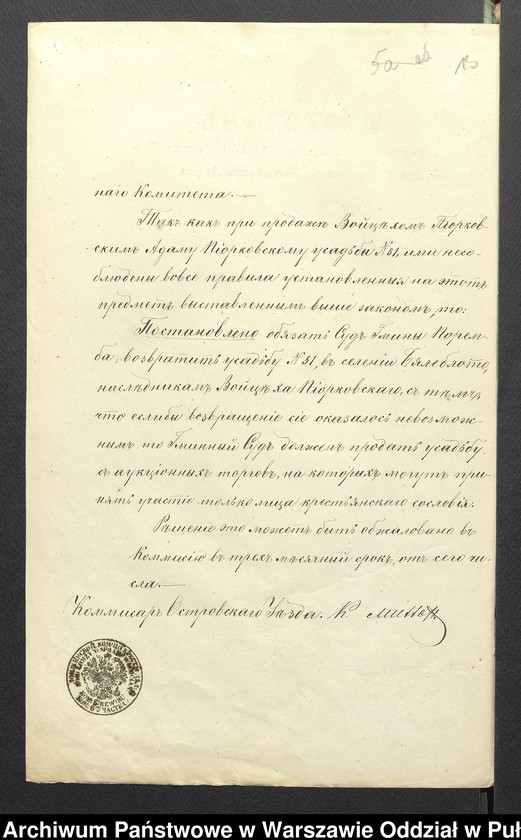 наго Комитета.—
Такъ какъ при продажѣ Войцѣхомъ Піорков-
скимъ Адаму Піорковскому усадьбы № 51, ими несо-
блюдены вовсе правила установленныя на этотъ
предметъ выставленнымъ выше закономъ, то:
Постановлено обязать Судъ Гмины Порем-
ба, возвратить усадьбу № 51, въ селеніи Бялеблото,
наслѣдникамъ Войцѣха Піорковскаго, съ тѣмъ,
что еслибы возвращеніе сіе оказалось невозмож-
нымъ то Гминный Судъ долженъ продать усадьбу
съ аукціонныхъ торговъ, на которыхъ могутъ при-
нять участіе только лица крестьянскаго сословія.
Рѣшеніе это можетъ быть обжаловано въ
Коммисію въ трех мѣсячный срокъ, отъ сего чи-
сла.—
Коммисаръ Островскаго Уѣзда.
Archiwum Państwowe w Warszawie Oddział w Puł